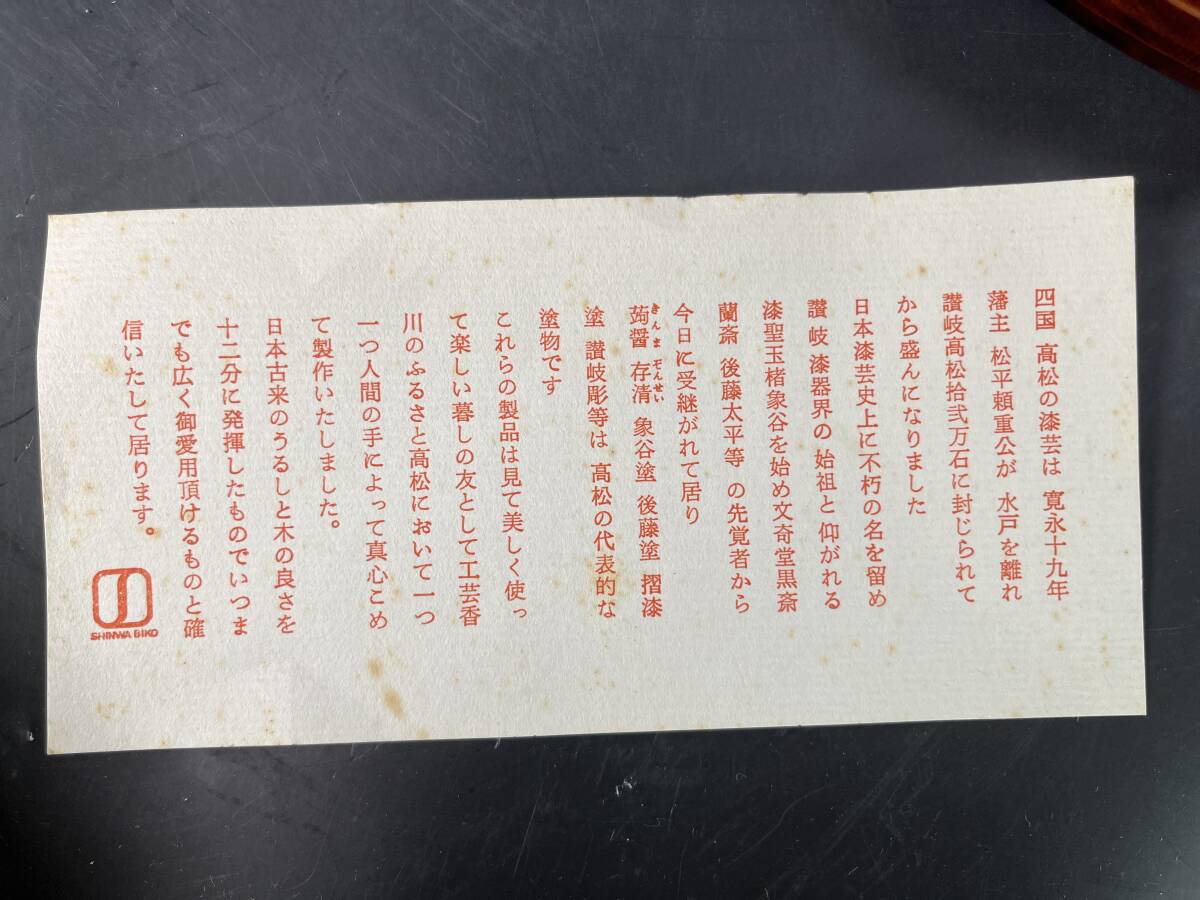 四国 高松の漆芸は 寛永十九年
藩主 松平頼重公が 水戸を離れ
讃岐高松拾弐万石に封じられて
から盛んになりました
日本漆芸史上に不朽の名を留め
讃岐 漆器界の 始祖と 仰がれる
漆聖玉楮象谷を始め文奇堂黒斎
蘭斎 後藤太平等 の先覚者から
今日に受継がれて居り
きんま ぞんせい
蒟醤 存清 象谷塗 後藤塗 摺漆
塗 讃岐彫等は 高松の代表的な
塗物です
これらの製品は見て美しく使っ
て楽しい暮しの友として工芸香
川のふるさと高松において一つ
一つ人間の手によって真心こめ
て製作いたしました。
日本古来のうるしと木の良さを
十二分に発揮したものでいつま
でも広く御愛用頂けるものと確
信いたして居ります。
SHINWA BIKO